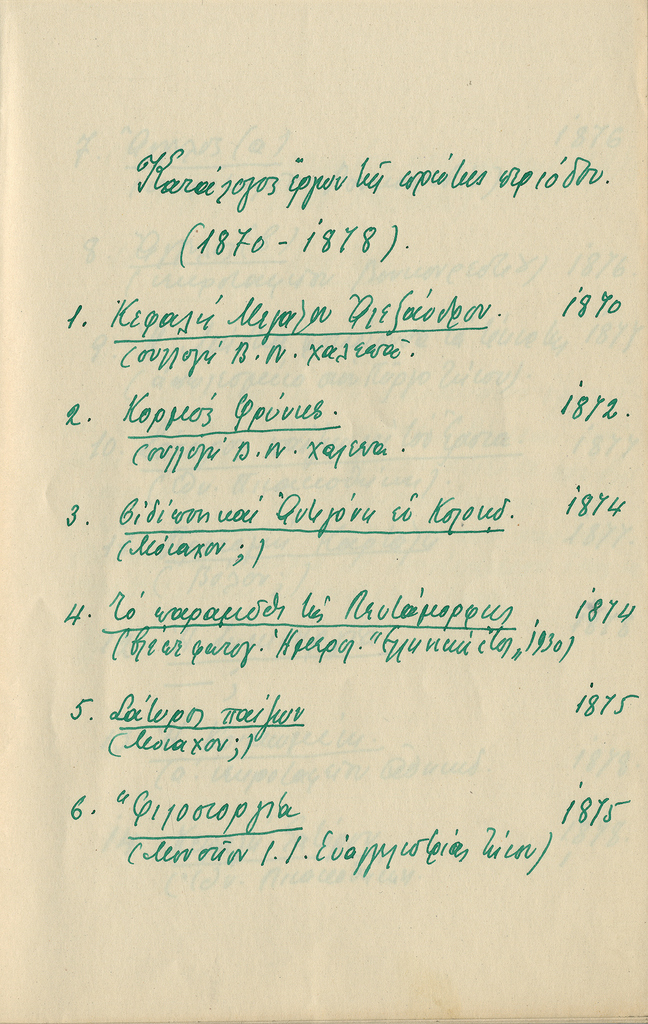 Κατάλογος ἔργων τῆς πρώτης περιόδου.
(1870 - 1878).
1. Κεφαλή Μεγάλου Ἀλεξάνδρου. 1870
(συλλογή Β.Ν. Χαλεπᾶ.
2. Κορμός Φρύνης. 1872.
(συλλογή Β.Ν. Χαλεπᾶ.
3. Οἰδίπους καί Ἀντιγόνη ἐν Κολωνῷ. 1874
(Μόναχον;)
4. Τό παραμύθι τῆς Πεντάμορφης 1874
(Βλέπε φωτογ. Ἡμερολ. "Ἑλληνικά ἔτος„ 1930)
5. Σάτυρος παίζων 1875
(Μόναχον;)
6. "Φιλοστοργία 1875
(Μουσεῖον Ι.Ι. Εὐαγγελιστρίας Τήνου)